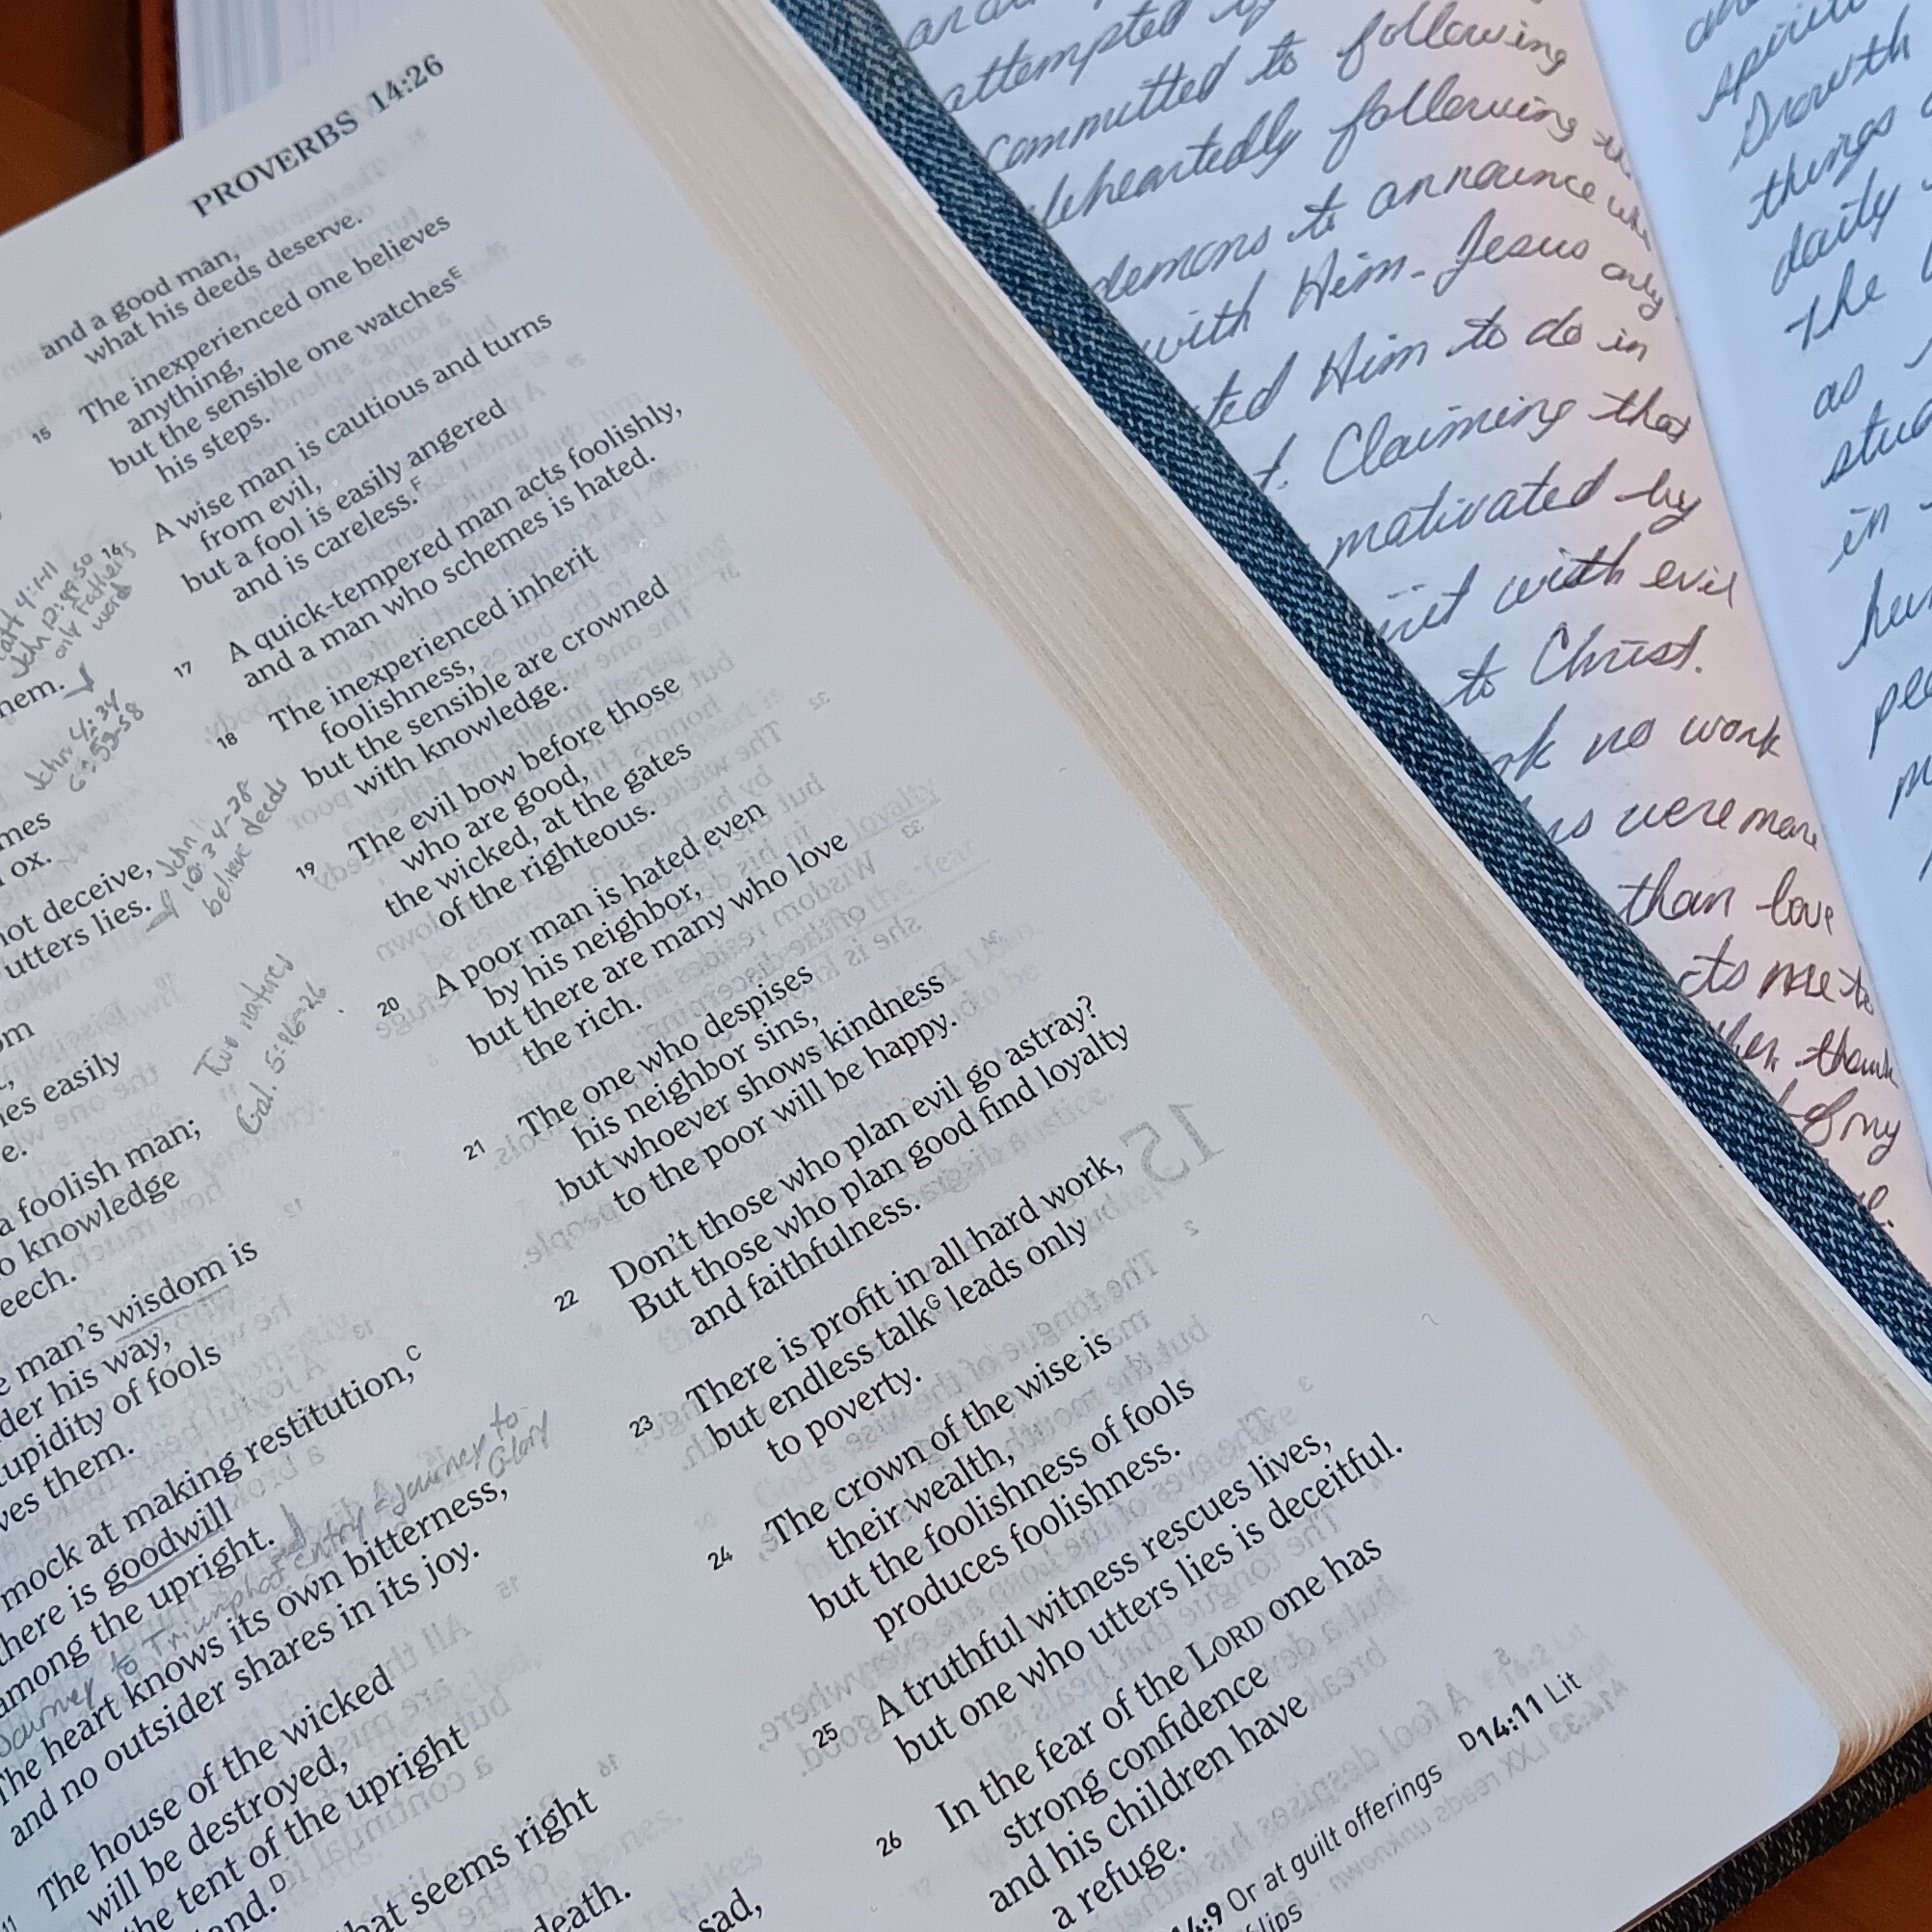 PROVERBS 14:26
hem.
mes
ox.
not deceive,
utters lies.
easily
a foolish man;
knowledge
eech.
man's wisdom is
his way,
of fools
them.
mock at making restitution,C
there is goodwill
among the upright.
The heart knows its own bitterness,
and no outsider shares in its joy.
11 The house of the wicked
will be destroyed,
the tent of the upright
D
that seems right
death.
sad,
Matt 4:1-11
John 12:49-50
only Father's
word
John 4:34
6:53-58
John
10:34-38
believe deeds
Two natures
Gal. 5:16-26
Journey to Triumphal entry = Journey to
Glory
and a good man,
what his deeds deserve.
15 The inexperienced one believes
anything,
but the sensible one watchesE
his steps.
16 A wise man is cautious and turns
from evil,
but a fool is easily angered
and is careless.F
17 A quick-tempered man acts foolishly,
and a man who schemes is hated.
18 The inexperienced inherit
foolishness,
but the sensible are crowned
with knowledge.
19 The evil bow before those
who are good,
the wicked, at the gates
of the righteous.
20 A poor man is hated even
by his neighbor,
but there are many who love
the rich.
21 The one who despises
his neighbor sins,
but whoever shows kindness
to the poor will be happy.
22 Don't those who plan evil go astray?
But those who plan good find loyalty
and faithfulness.
23 There is profit in all hard work,
but endless talkG leads only
to poverty.
24 The crown of the wise is
their wealth,
but the foolishness of fools
produces foolishness.
25 A truthful witness rescues lives,
but one who utters lies is deceitful.
26 In the fear of the LORD one has
strong confidence
and his children have
a refuge.
14:9 Or at guilt offerings D14:11 Lit
lips
attempted
committed to following
following
demons to announce who
with Him. Jesus only
Him to do in
Claiming that
motivated by
with evil
to Christ.
no work
were more
than love
me to
thank
of my
Growth
things
daily
the
as
in